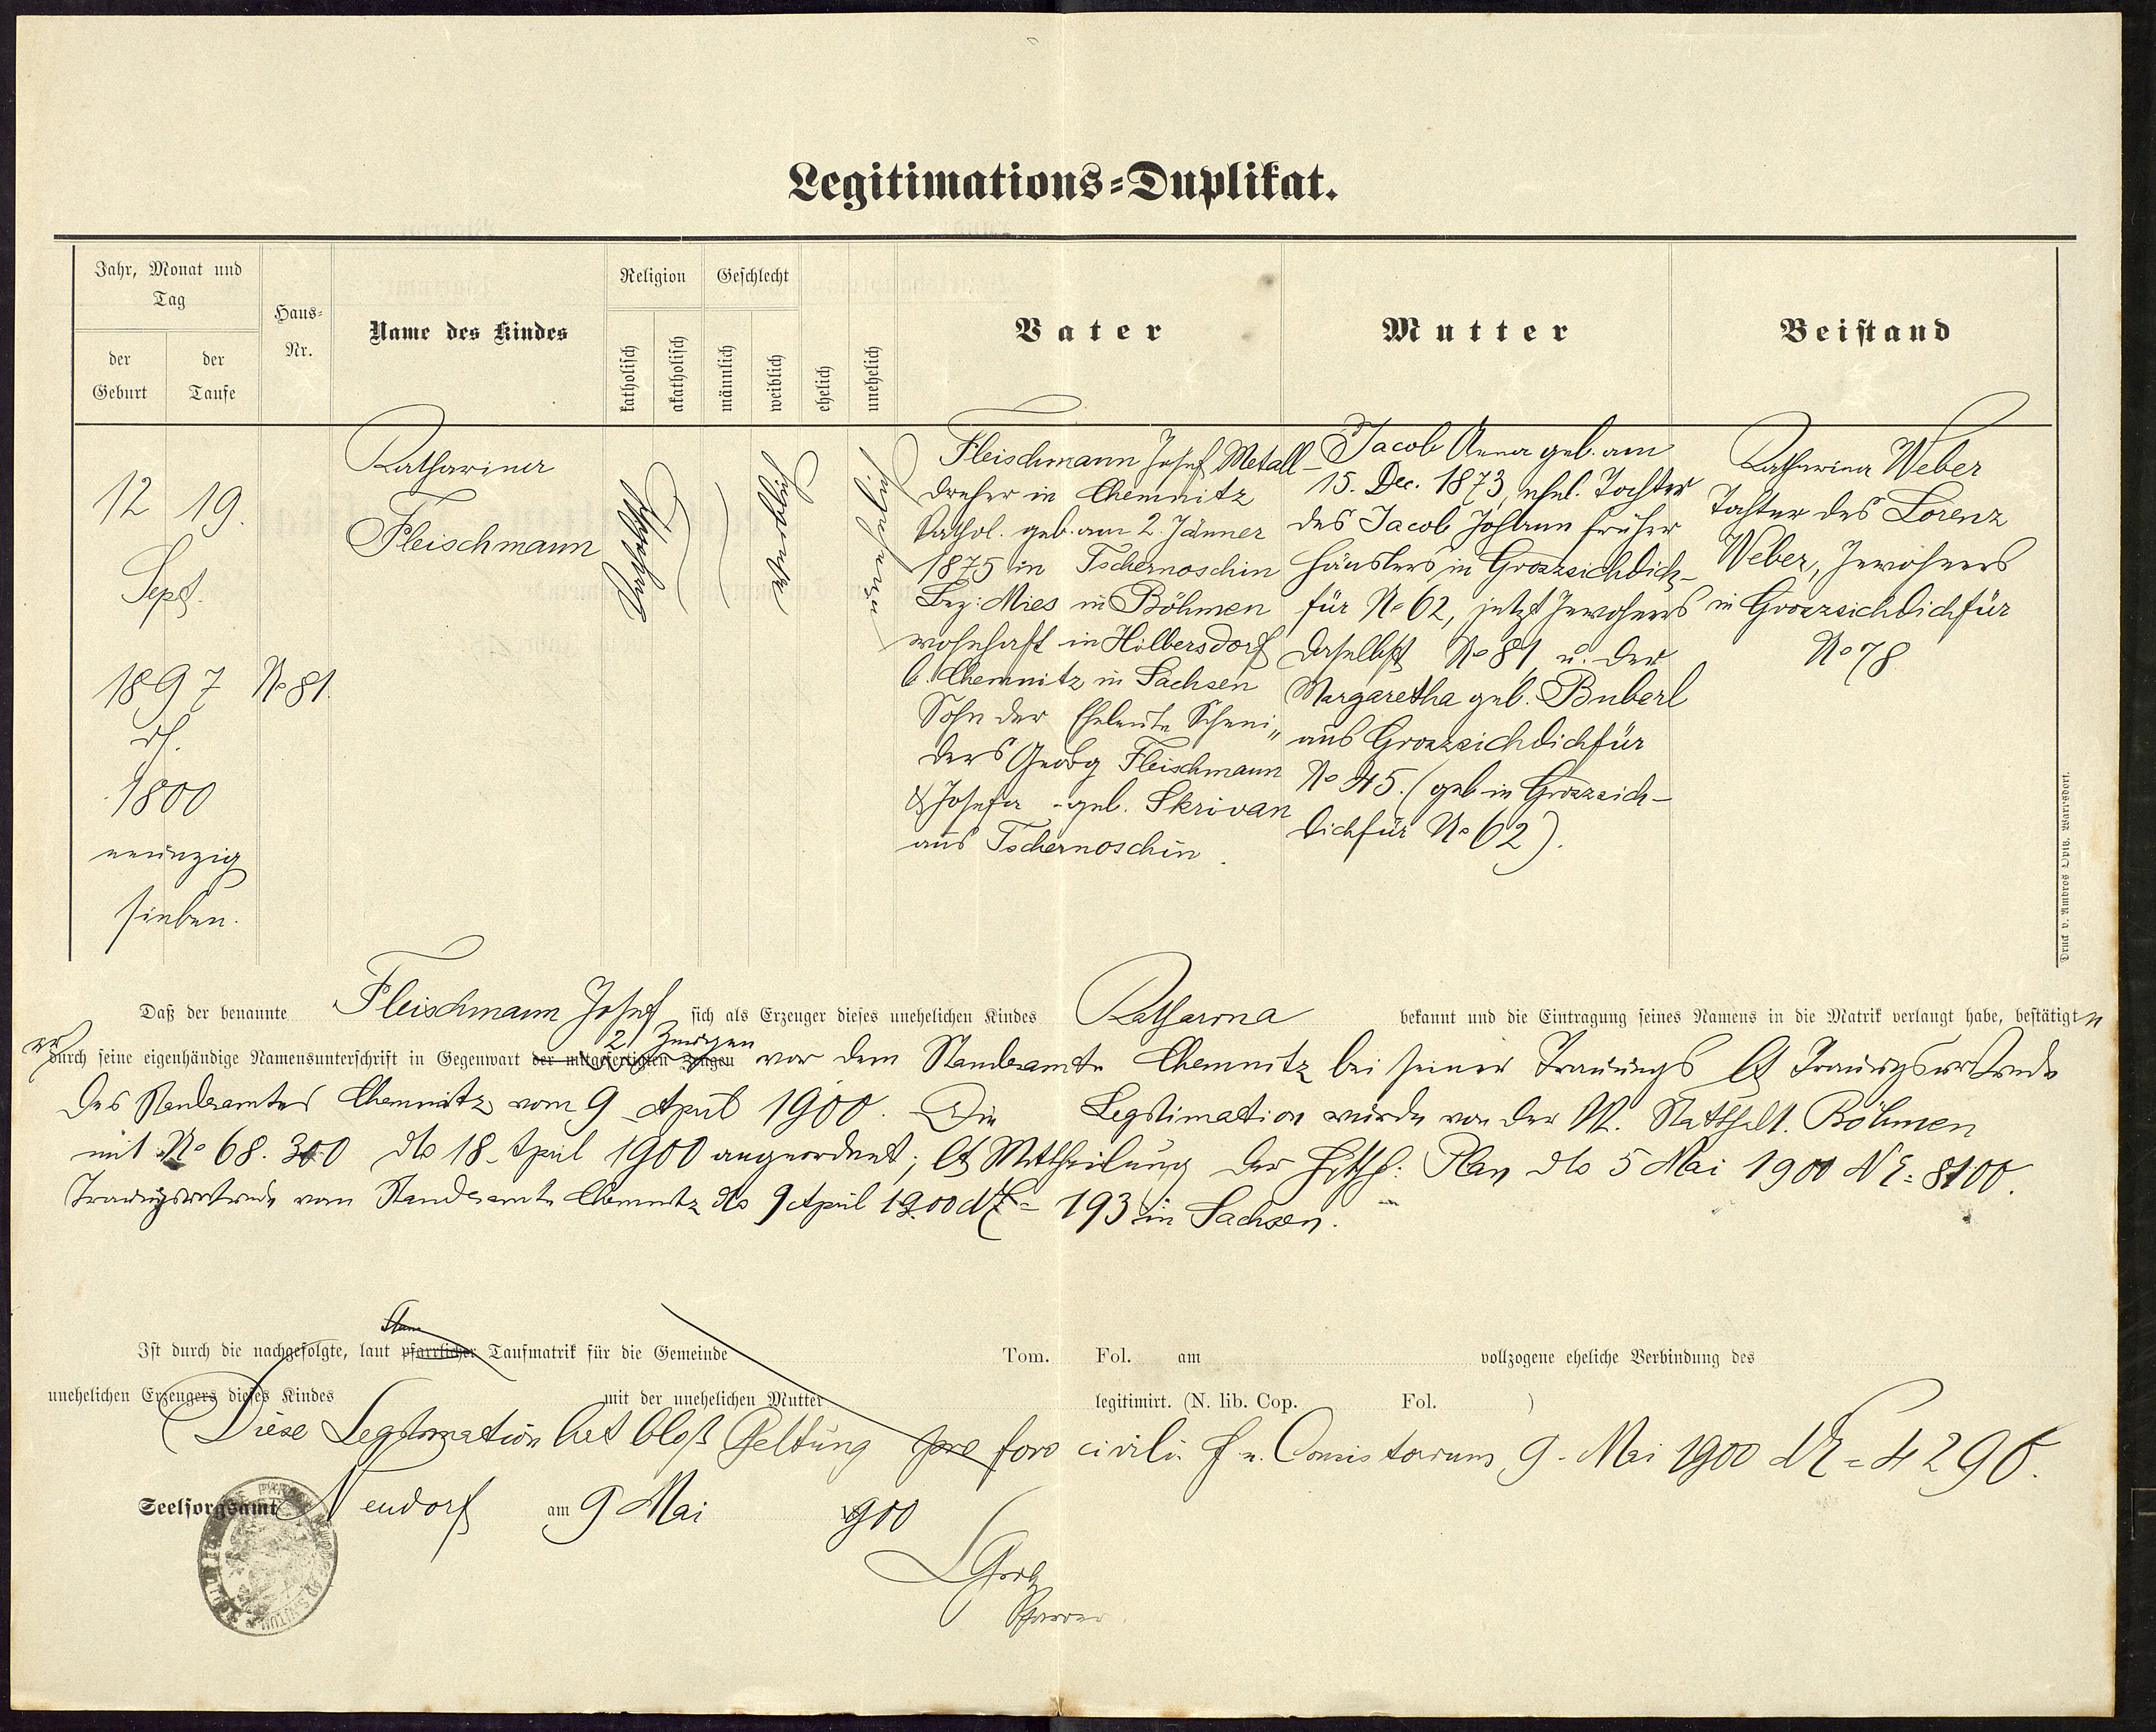 Legitimations-Duplikat.
Jahr, Monat und Tag
der Geburt
der Taufe
Haus-Nr.
Name des Kindes
Religion
katholisch
akatholisch
Geschlecht
männlich
weiblich
ehelich
unehelich
Vater
Mutter
Beistand
12 19.
Sept.
1897
1800
neunzig
sieben.
No 81.
Katharina
Fleischmann
Katholisch
weiblich
unehelich
Fleischmann Josef, Metall-
dreher in Chemnitz
kathol. geb. am 2. Jänner
1875 in Tschernoschin
Bez: Mies in Böhmen
wohnhaft in Hilbersdorf
b. Chemnitz in Sachsen
Sohn der Eheleute Schnei„
ders Georg Fleischmann
& Josefa geb. Skrivan
aus Tschernoschin.
Jacob Anna geb. am
15. Dec. 1873, ehel. Tochter
des Jacob Johann früher
Häuslers in Grosssichdich-
für No 62, jetzt Inwohners
daselbst No 81 u. der
Margaretha geb. Buberl
aus Grosssichdichfür
No 45. (geb in Grosssich-
dichfür No 62).
Katharina Weber
Tochter des Lorenz
Weber, Inwohners
in Grosssichdichfür
No 78
Druck v. Ambros Opitz. Warnsdorf.
Daß der benannte Fleischmann Josef sich als Erzeuger dieses unehelichen Kindes Katharina bekannt und die Eintragung seines Namens in die Matrik verlangt habe, bestätigt
er durch seine eigenhändige Namensunterschrift in Gegenwart der mitgefertigten Zeugen 2 Zeugen vor dem Standesamte Chemnitz bei seiner Trauung lt Trauungsurkunde
des Standesamtes Chemnitz vom 9. April 1900. Die Legitimation wurde von der Statthalt. Böhmen
mit No 68.300 dto 18. April 1900 angeordnet; lt Mittheilung der Plan dto 5 Mai 1900 NE: 8100.
Trauungsurkunde vom Standesamte Chemnitz dto 9 April 1900 193 in Sachsen.
Ist durch die nachgefolgte, laut pfarrlicher Taufmatrik für die Gemeinde Tom. Fol. am vollzogene eheliche Verbindung des
unehelichen Erzeugers dieses Kindes mit der unehelichen Mutter legitimirt. (N. lib. Cop. Fol. )
Diese Legitimation hat bloß Geltung pro foro civili. Consistorium 9. Mai 1900 NE = 4290.
Seelsorgsamt Neudorf am 9 Mai 1900
Pfarrer.